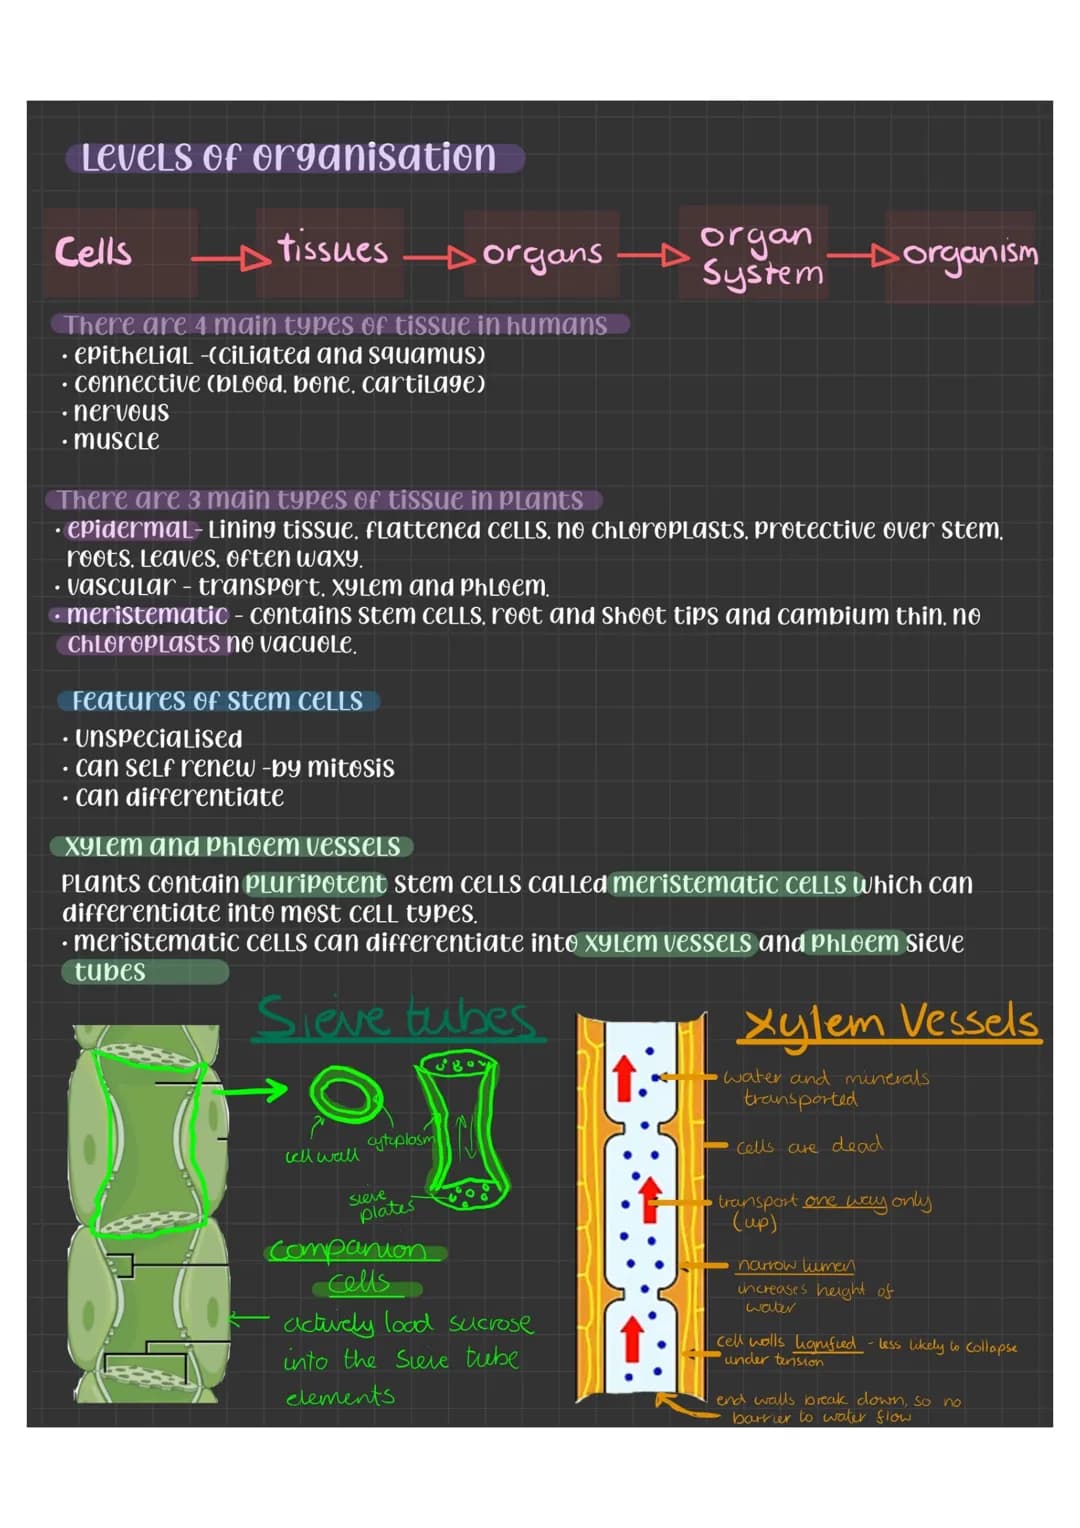 Levels of organisation
Cells → tissues → organs → organ system → organism
There are 4 main types of tissue in humans
· epithelial -(ciliated and squamus)
· connective (blood, bone, cartilage)
· nervous
· muscle
There are 3 main types of tissue in plants
· epidermal- Lining tissue, flattened cells, no chloroplasts, protective over stem,
roots, leaves, often waxy.
· vascular - transport, xylem and phloem.
· meristematic - contains stem cells, root and shoot tips and cambium thin, no
chloroplasts no vacuole.
Features of stem cells
· unspecialised
· can self renew -by mitosis
· can differentiate
Xylem and phloem vessels
Plants contain pluripotent stem cells called meristematic cells which can
differentiate into most cell types.
· meristematic cells can differentiate into xylem vessels and phloem sieve
tubes
Sieve tubes
cell wall
cytoplasm
sieve
plates
companion
cells
actively load sucrose
into the sieve tube
elements
xylem vessels
water and minerals
transported
cells are dead
transport one way only
(up)
narrow lumen
increases height of
water
cell walls lignified - less likely to collapse
under tension
end walls break down, so no
barrier to water flow